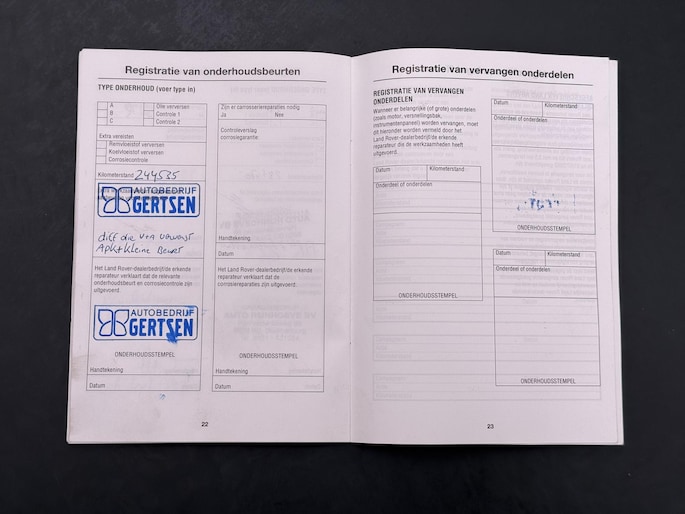 Registratie van onderhoudsbeurten
TYPE ONDERHOUD (voer type in)
A
Olie verversen
B
Controle 1
C
Controle 2
Extra vereisten
Remvloeistof verversen
Koelvloeistof verversen
Corrosiecontrole
Kilometerstand 244535
AUTOBEDRIJF
GERTSEN
Apk+kleine Beurt
Het Land Rover-dealerbedrijf/de erkende
reparateur verklaart dat de relevante
onderhoudsbeurt en corrosiecontrole zijn
uitgevoerd:
AUTOBEDRIJF
GERTSEN
ONDERHOUDSSTEMPEL
Handtekening
Datum
Zijn er corrosiereparaties nodig
Ja Nee
Controleverslag
corrosiegarantie:
Handtekening:
Datum
Het Land Rover-dealerbedrijf/de erkende
reparateur verklaart dat de
corrosiereparaties zijn uitgevoerd:
ONDERHOUDSSTEMPEL
Handtekening
Datum
22
Registratie van vervangen onderdelen
REGISTRATIE VAN VERVANGEN
ONDERDELEN
Wanneer er belangrijke (of grote) onderdelen
(zoals motor, versnellingsbak,
instrumentenpaneel) worden vervangen, moet
dit hieronder worden vermeld door het
Land Rover-dealerbedrijf/de erkende
reparateur die de werkzaamheden heeft
uitgevoerd.
Datum Kilometerstand
Onderdeel of onderdelen
ONDERHOUDSSTEMPEL
Datum Kilometerstand
Onderdeel of onderdelen
ONDERHOUDSSTEMPEL
Datum Kilometerstand
Onderdeel of onderdelen
ONDERHOUDSSTEMPEL
23